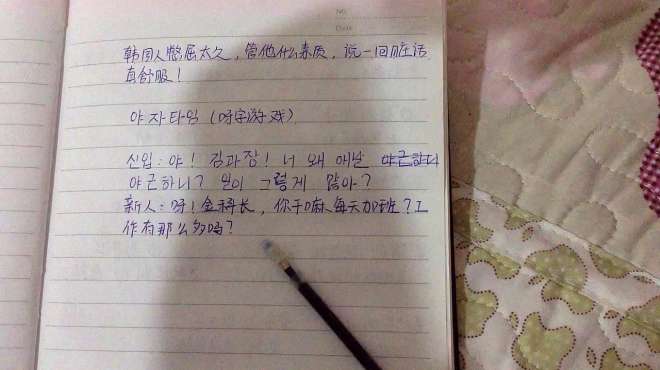 No.
Date
韩国人憋屈太久，管他什么素质，说一回脏话
真舒服！
야자타임（呀字游戏）
신입：야！김과장！너 왜 매날 야근하니
야근하니？일이 그렇게 많아？
新人：呀！金科长，你干嘛每天加班？工
作有那么多吗？